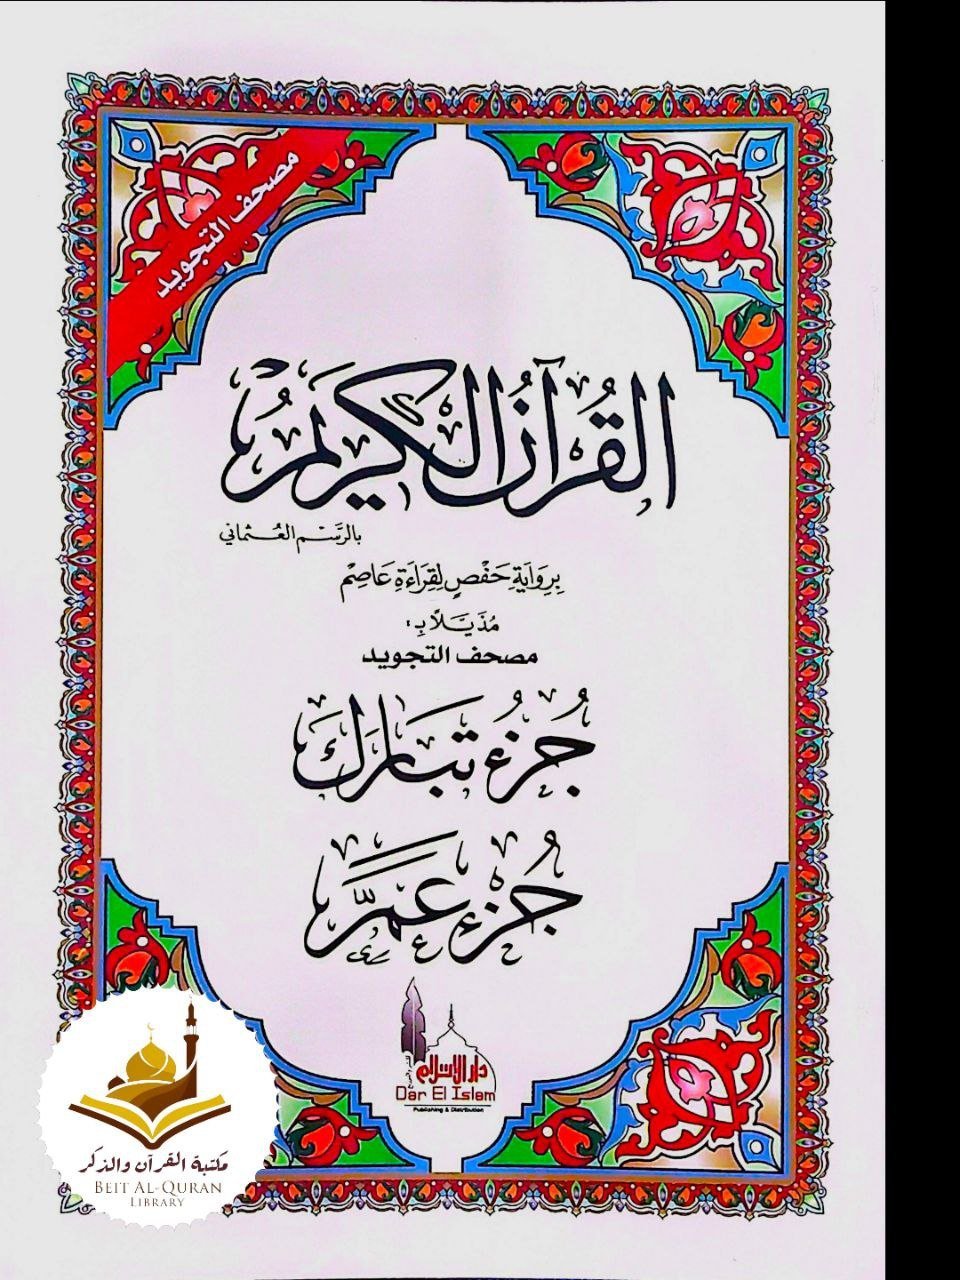 مصحف التجويد
القُرآنُ الكَرِيمُ
بالرَّسْم العُثماني
بِرِوَايَةِ حَفْصٍ لِقِرَاءَةِ عَاصِمْ
مُذَيَّلًا بِ:
مصحف التجويد
جُزْءُ تَبَارَكَ
جُزْءُ عَمَّ
دار الإسلام
Dar El Islam
Publishing & Distribution
مكتبة القرآن والذكر
BEIT AL-QURAN
LIBRARY